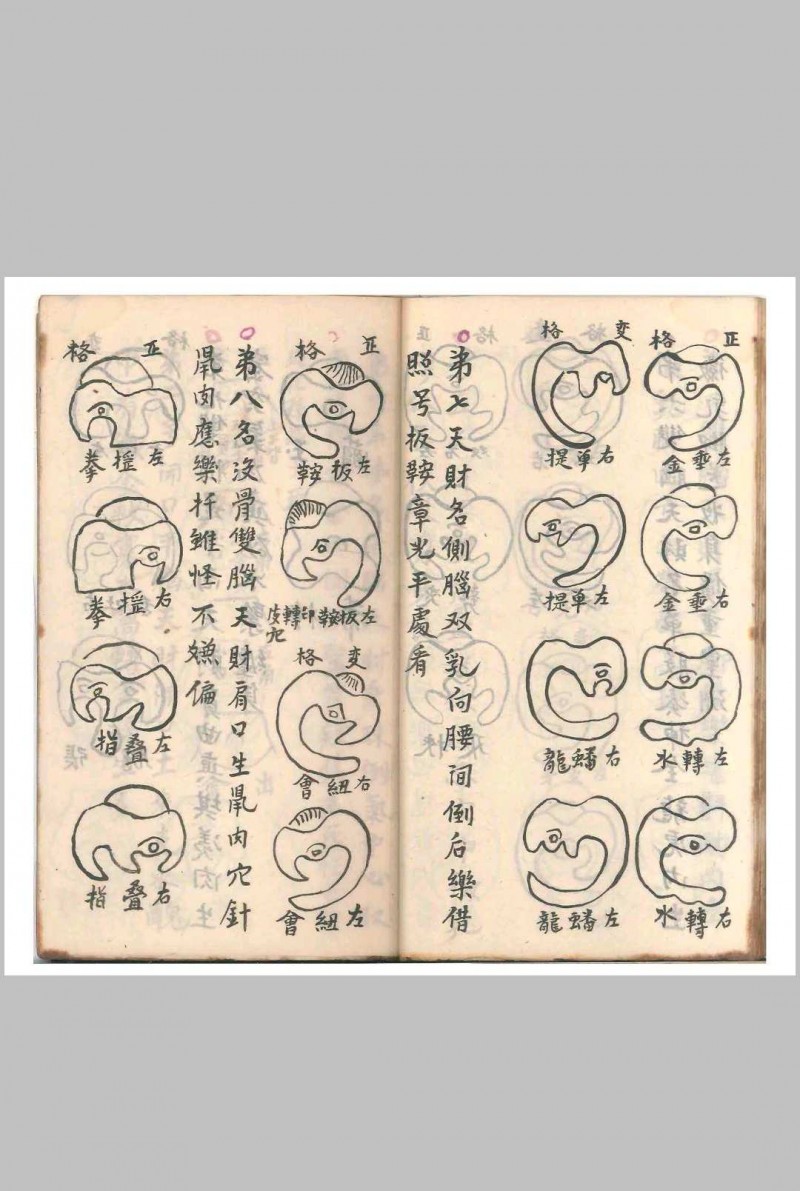 正格
左垂金
右垂金
左轉水
右轉水
变格
右单提
左单提
右蟠龍
左蟠龍
弟七天財名側腦双乳向腰间倒后樂借
照号板鞍章光平處看
正格
左板鞍
左板鞍印轉皮穴
变格
右紐會
左紐會
弟八名没骨雙腦天財肩口生鼡肉穴針
鼡肉應樂扦雖怪不嫌偏
正格
左摇拳
右摇拳
左叠指
右叠指